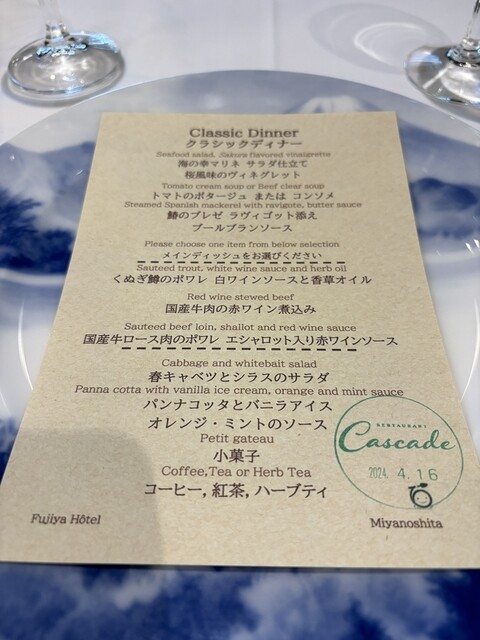 Classic Dinner
クラシックディナー
Seafood salad, Sakura flavored vinaigrette
海の幸マリネ サラダ仕立て
桜風味のヴィネグレット
Tomato cream soup or Beef clear soup
トマトのポタージュ または コンソメ
Steamed Spanish mackerel with ravigote, butter sauce
鰆のブレゼ ラヴィゴット添え
ブールブランソース
Please choose one item from below selection
メインディッシュをお選びください
Sauteed trout, white wine sauce and herb oil
くぬぎ鱒のポワレ 白ワインソースと香草オイル
Red wine stewed beef
国産牛肉の赤ワイン煮込み
Sauteed beef loin, shallot and red wine sauce
国産牛ロース肉のポワレ エシャロット入り赤ワインソース
Cabbage and whitebait salad
春キャベツとシラスのサラダ
Panna cotta with vanilla ice cream, orange and mint sauce
パンナコッタとバニラアイス
オレンジ・ミントのソース
Petit gateau
小菓子
Coffee,Tea or Herb Tea
コーヒー, 紅茶, ハーブティ
RESTAURANT
Cascade
2024. 4. 16
Fujiya Hôtel
Miyanoshita